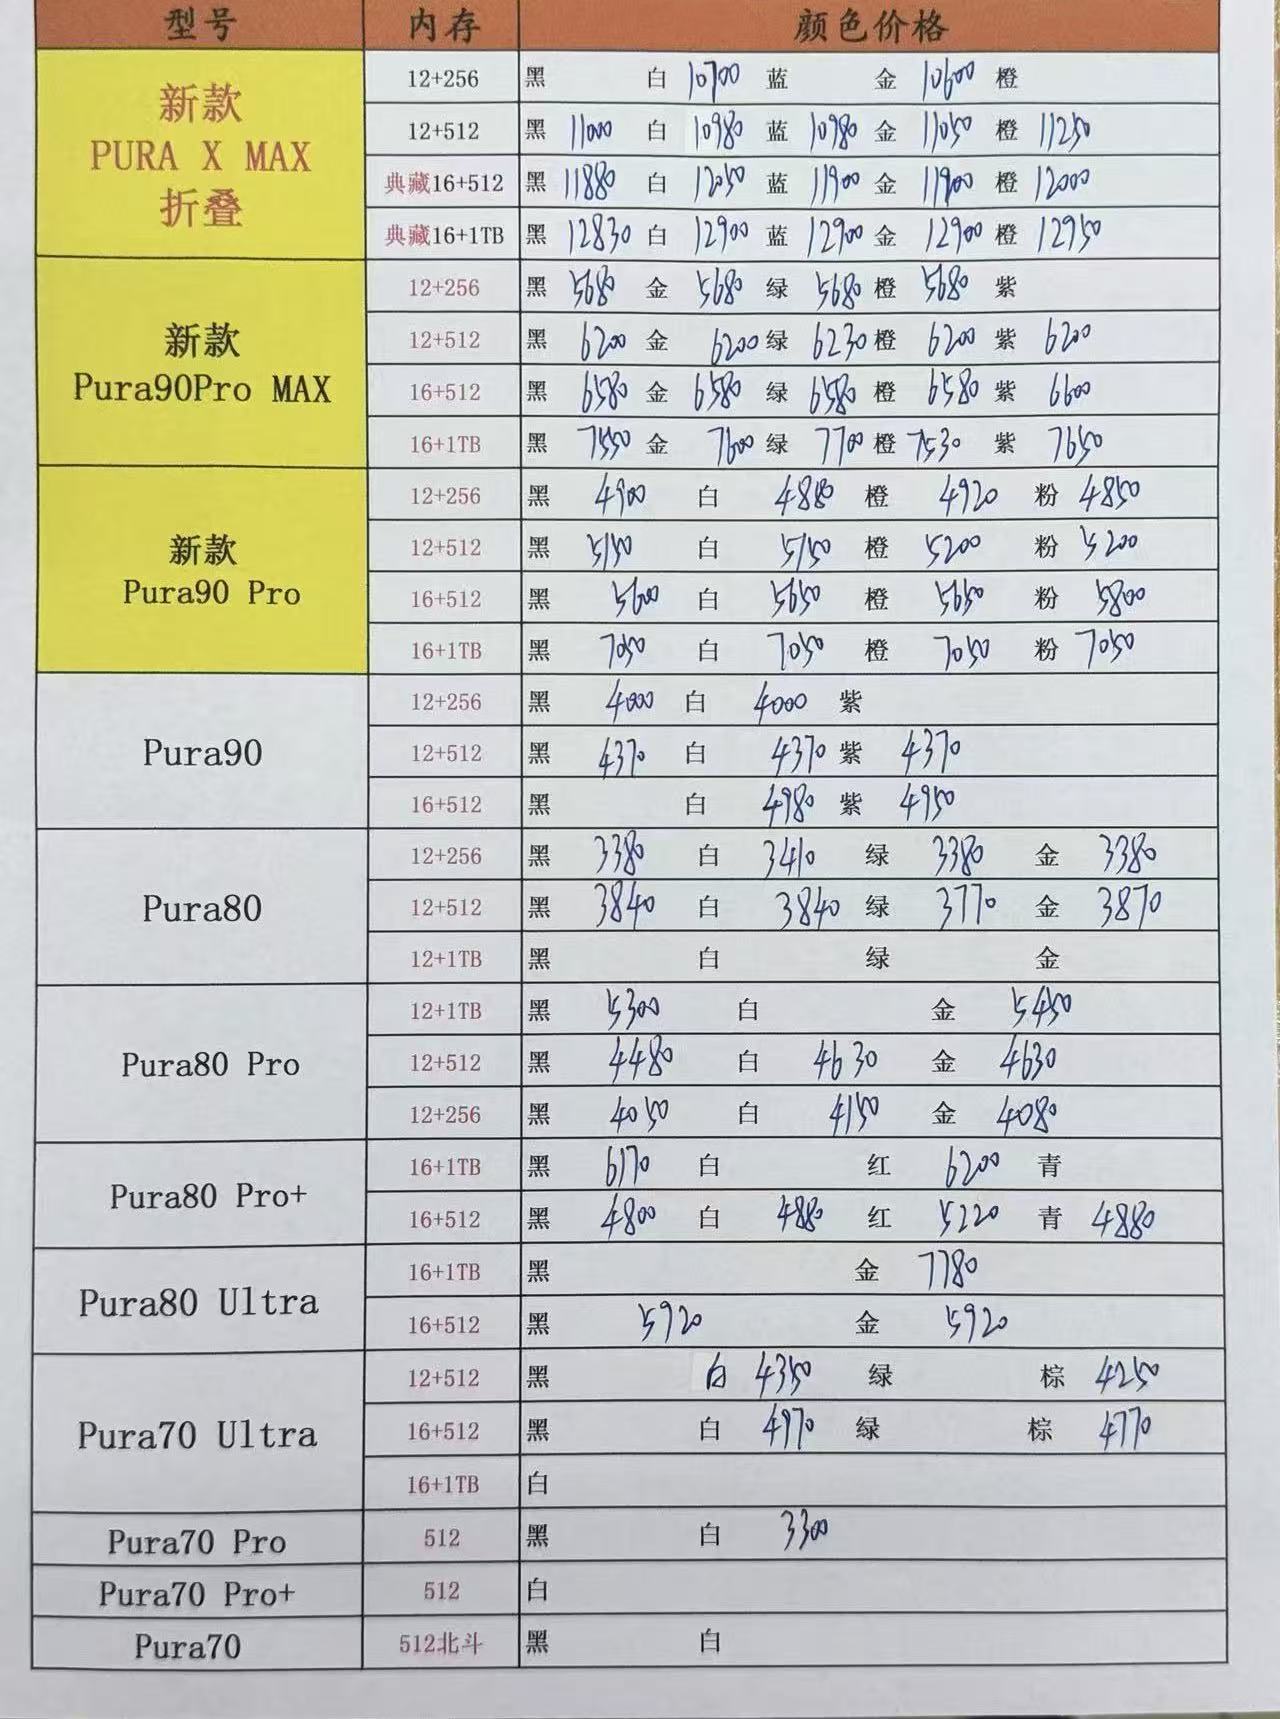 型号 内存 颜色价格
新款 PURA X MAX 折叠
12+256 黑 白 10700 蓝 金 10600 橙
12+512 黑 11000 白 10980 蓝 10980 金 11050 橙 11250
典藏16+512 黑 11880 白 12050 蓝 11900 金 11900 橙 12000
典藏16+1TB 黑 12830 白 12900 蓝 12900 金 12900 橙 12950
新款 Pura90Pro MAX
12+256 黑 5680 金 5680 绿 5680 橙 5680 紫
12+512 黑 6200 金 6200 绿 6230 橙 6200 紫 6200
16+512 黑 6580 金 6580 绿 6580 橙 6580 紫 6600
16+1TB 黑 7550 金 7600 绿 7700 橙 7530 紫 7650
新款 Pura90 Pro
12+256 黑 4900 白 4880 橙 4920 粉 4850
12+512 黑 5150 白 5150 橙 5200 粉 5200
16+512 黑 5600 白 5650 橙 5650 粉 5800
16+1TB 黑 7050 白 7050 橙 7050 粉 7050
Pura90
12+256 黑 4000 白 4000 紫
12+512 黑 4370 白 4370 紫 4370
16+512 黑 白 4980 紫 4950
Pura80
12+256 黑 3380 白 3410 绿 3380 金 3380
12+512 黑 3840 白 3840 绿 3770 金 3870
12+1TB 黑 白 绿 金
Pura80 Pro
12+1TB 黑 5300 白 金 5450
12+512 黑 4480 白 4630 金 4630
12+256 黑 4050 白 4150 金 4080
Pura80 Pro+
16+1TB 黑 6170 白 红 6200 青
16+512 黑 4800 白 4880 红 5220 青 4880
Pura80 Ultra
16+1TB 黑 金 7780
16+512 黑 5920 金 5920
Pura70 Ultra
12+512 黑 白 4350 绿 棕 4250
16+512 黑 白 4970 绿 棕 4770
16+1TB 白
Pura70 Pro 512 黑 白 3300
Pura70 Pro+ 512 白
Pura70 512北斗 黑 白